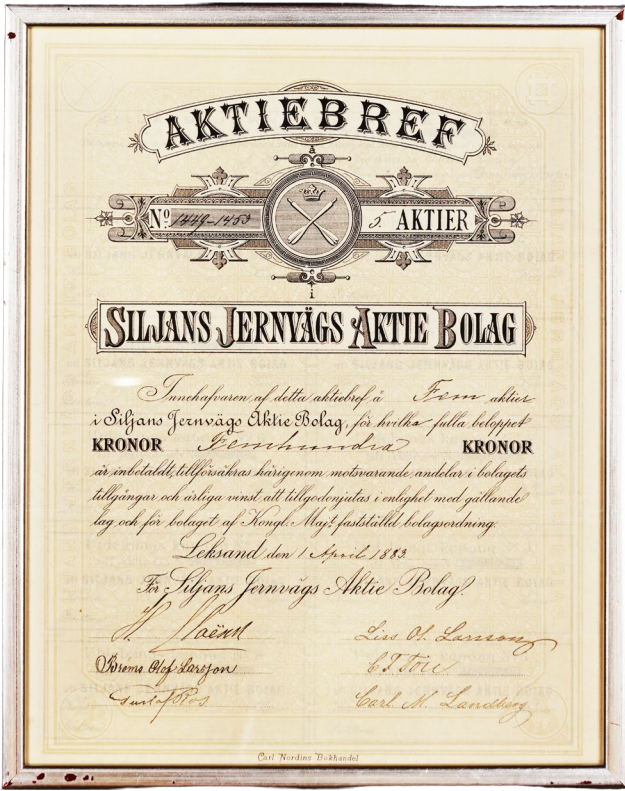 AKTIEBREF
No 1449-1453 5 AKTIER
SILJANS JERNVÄGS AKTIE BOLAG
Innehafvaren af detta aktiebref å Fem aktier
i Siljans Jernvägs Aktie Bolag, för hvilka fulla beloppet
KRONOR Femhundra KRONOR
är inbetaldt, tillförsäkras härigenom motsvarande andelar i bolagets
tillgångar och årliga vinst att tillgodonjutas i enlighet med gällande
lag och för bolaget af Kongl. Majt. fastställd bolagsordning.
Leksand den 1 April 1883.
För Siljans Jernvägs Aktie Bolag.
H.
Liss Ol. Larsson
Broms Olof Larsson
Gustaf Ros
Carl M. Landberg
Carl Nordins Bokhandel